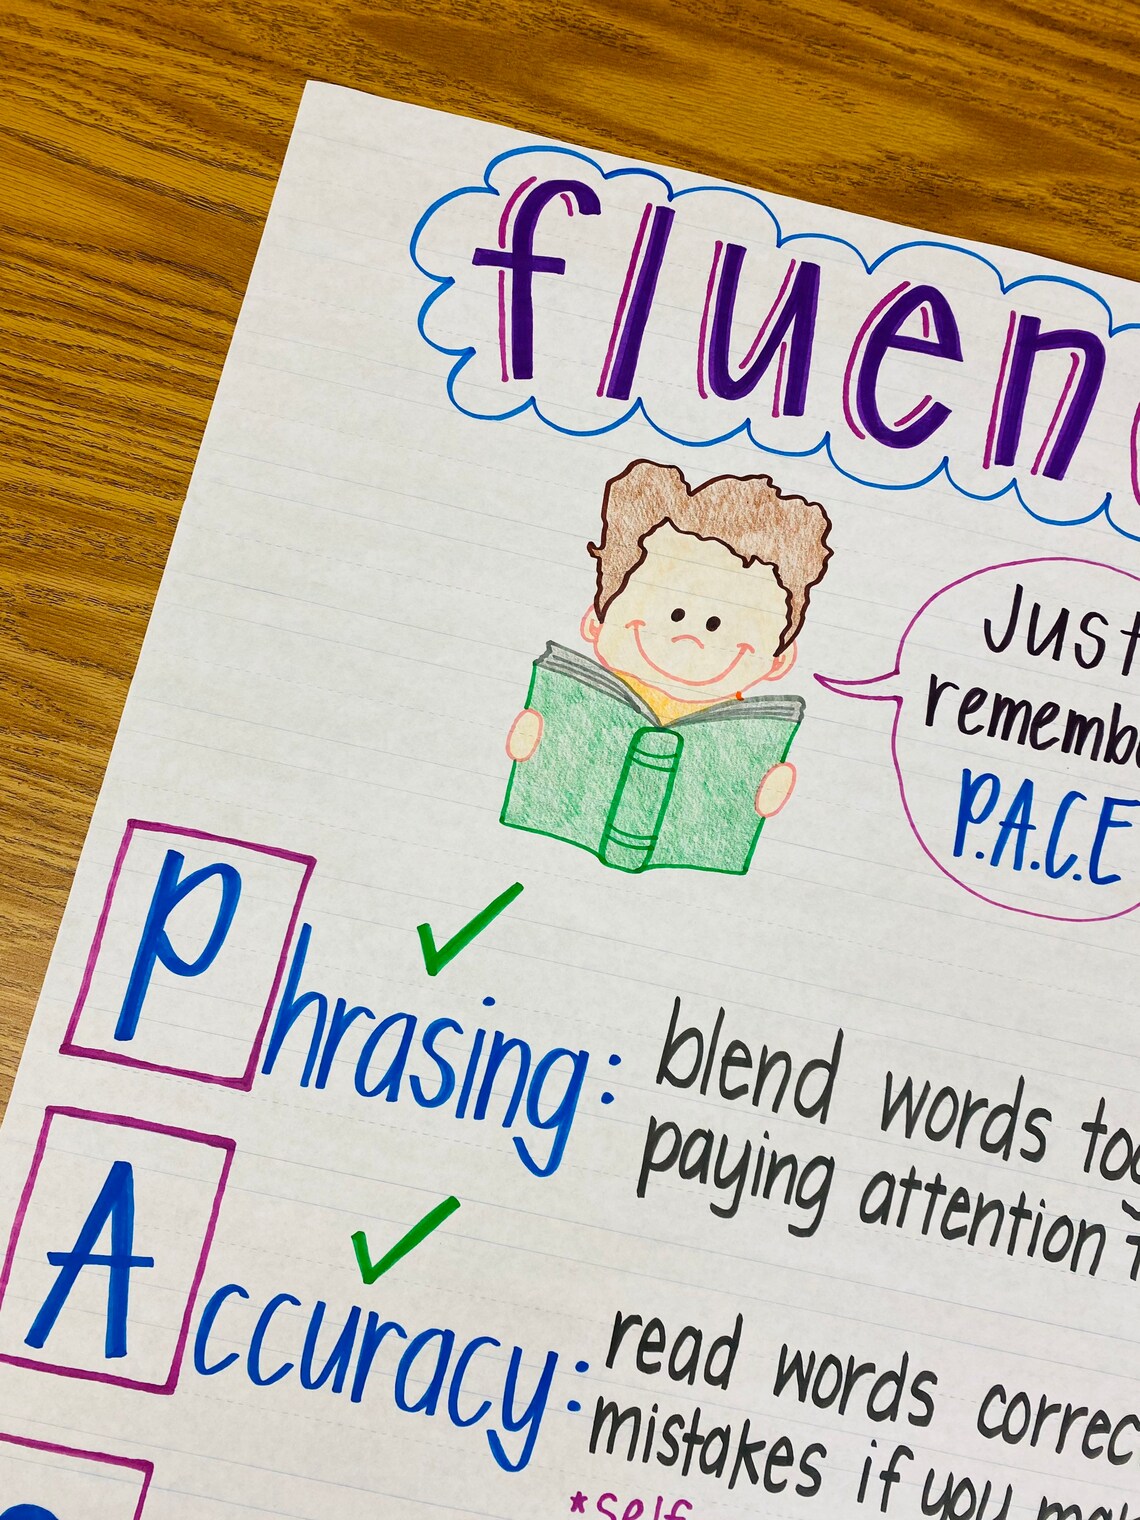 fluen
Just
remember
P.A.C.E
Phrasing: blend words
paying attention
Accuracy: read words
mistakes if you
*self